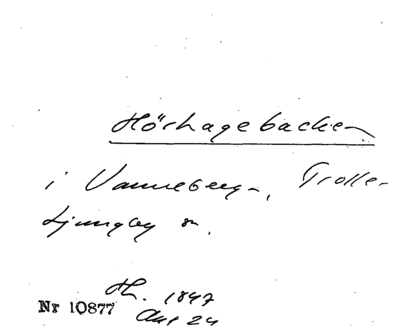 Hörhagebacken
i Vanneberga, Trolle-
Ljungby sn.
Hh. 1847
Nr 10877
Akt 24